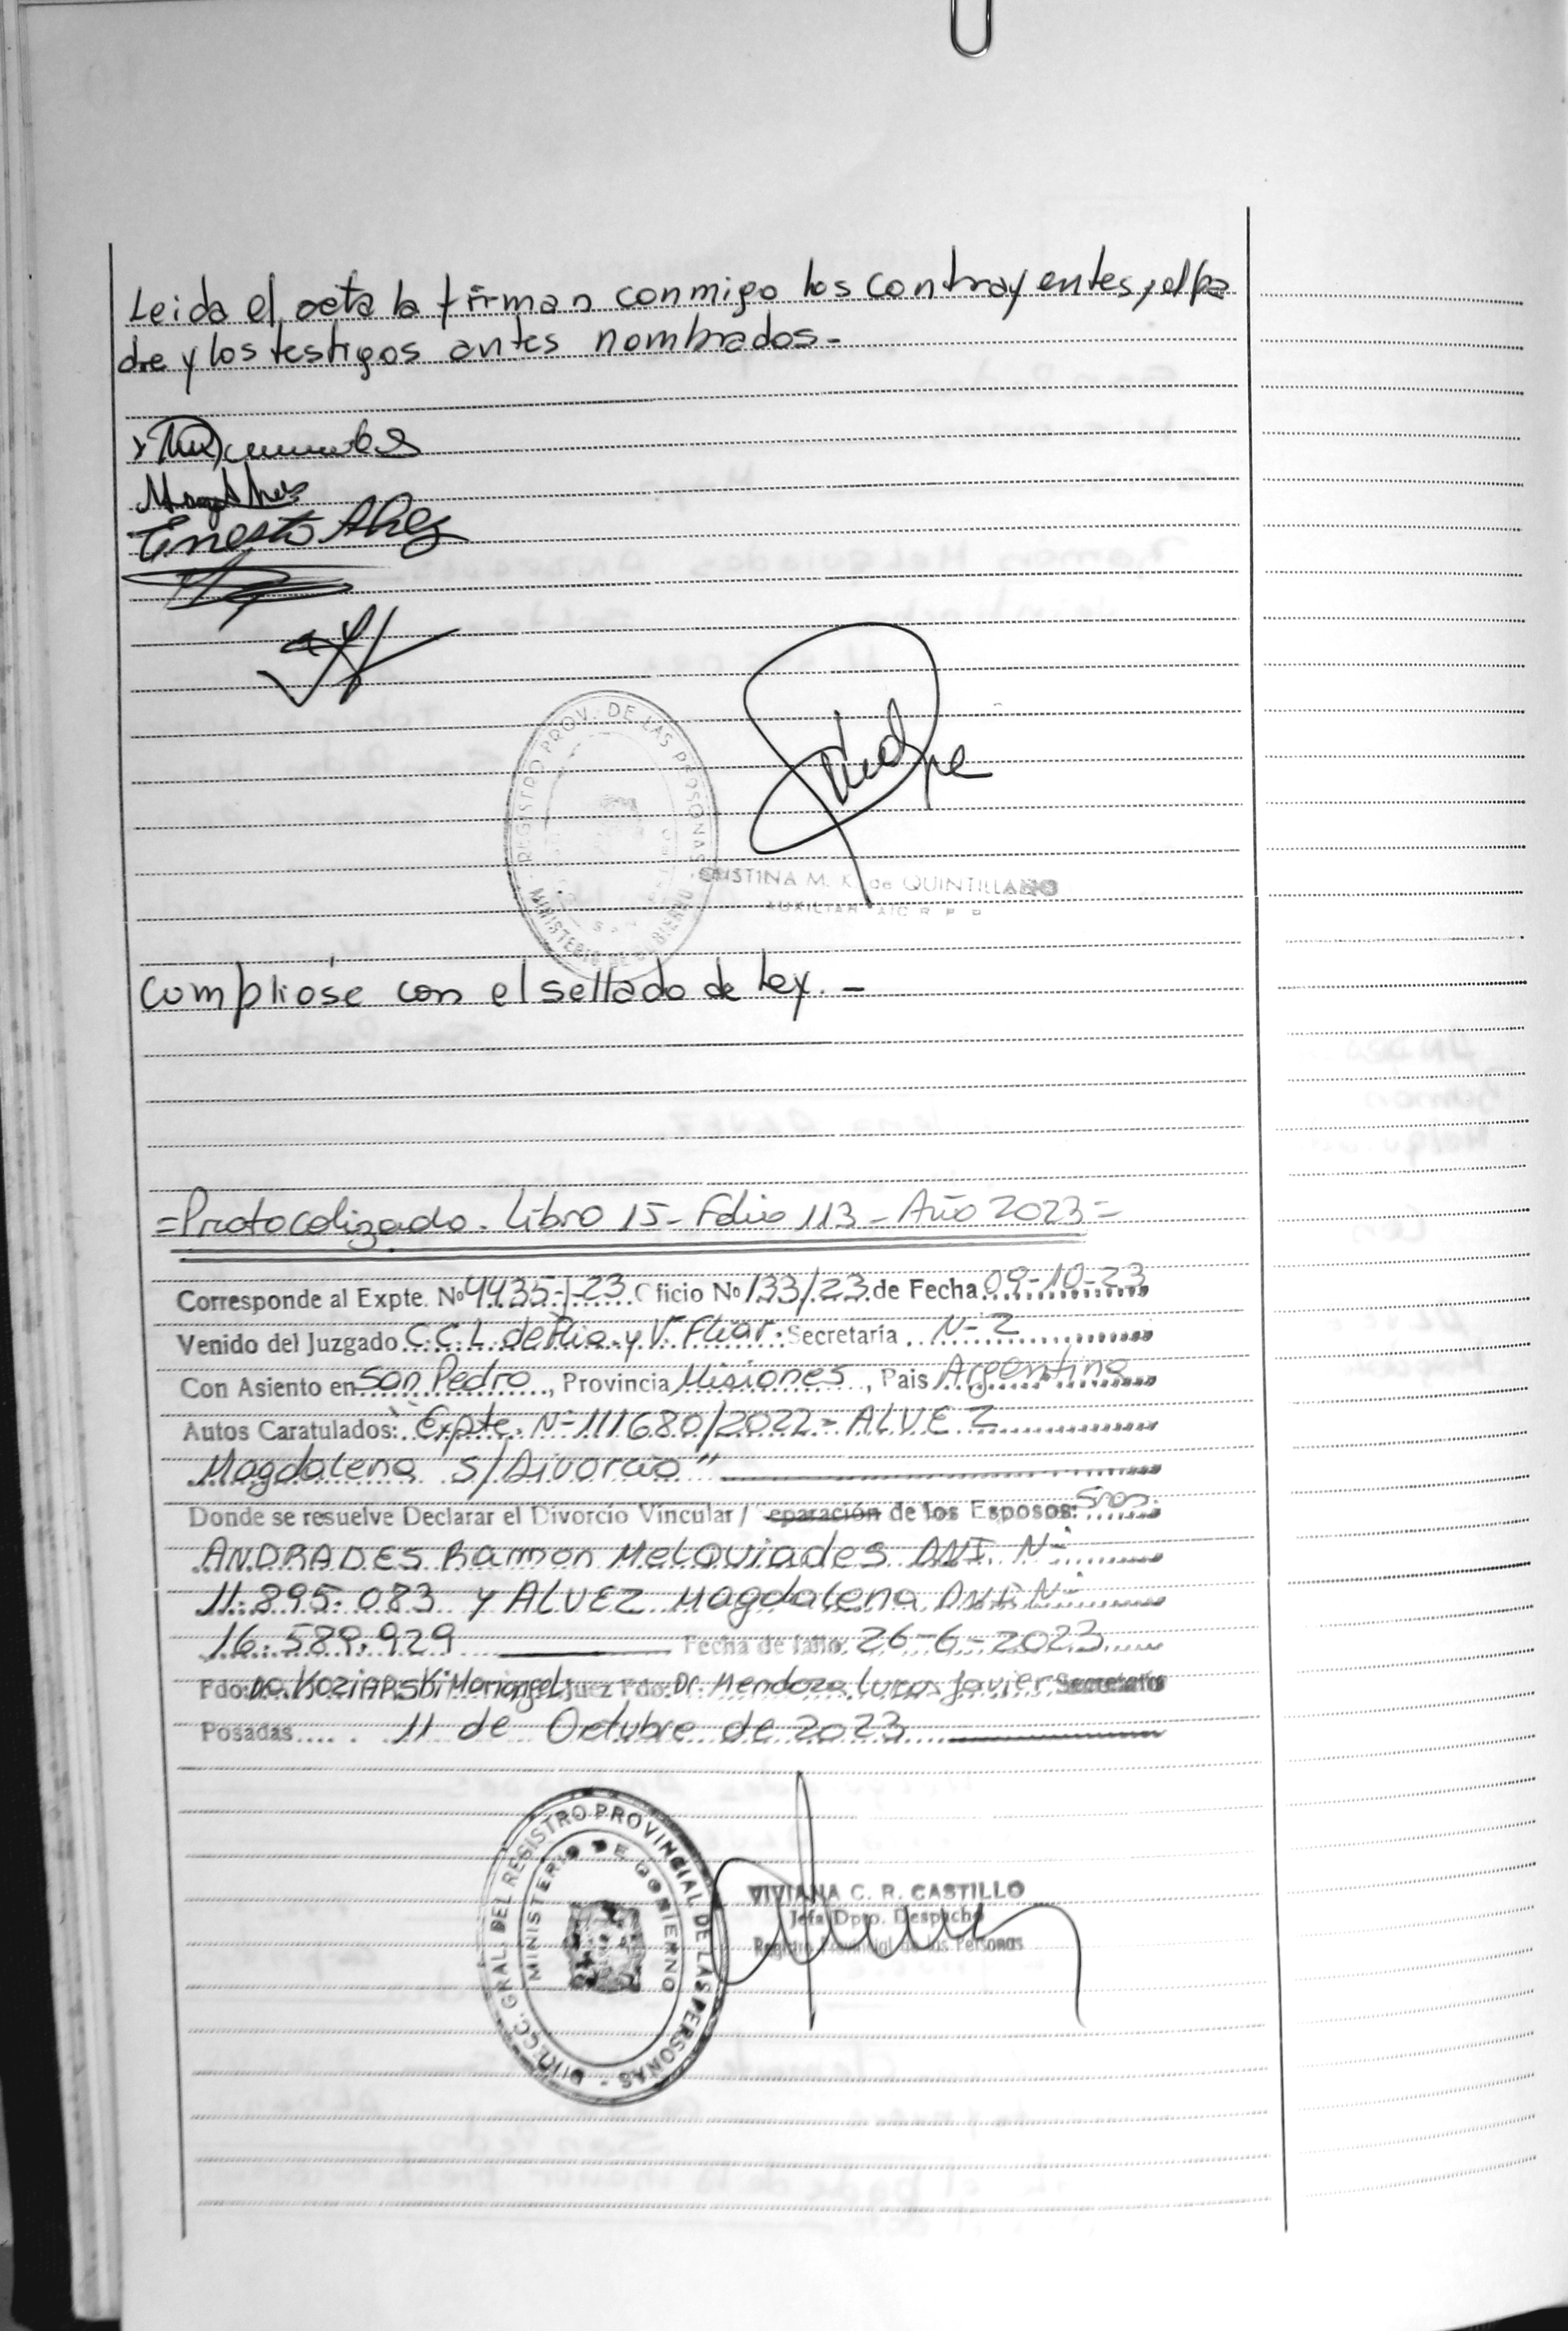 Leida el acta la firman conmigo los contrayentes, el pa
dre y los testigos antes nombrados.-
Ernesto Alvez
REGISTRO PROV. DE LAS PERSONAS
MINISTERIO DE GOBIERNO
CRISTINA M. K. de QUINTILLANO
AUXILIAR A/C R. P. P.
Cumplióse con el sellado de Ley.-
=Protocolizado. Libro 15- Folio 113- Año 2023=
Corresponde al Expte. Nº 4435-J-23 Oficio Nº 133/23 de Fecha 09-10-23
Venido del Juzgado C.C.L. de Flia. y Vº Fliar. Secretaría Nº 2
Con Asiento en San Pedro, Provincia Misiones, Pais Argentina
Autos Caratulados: "Expte. Nº 111680/2022- ALVEZ
Magdalena S/Divorcio"
Donde se resuelve Declarar el Divorcio Vincular / eparación de los Esposos: Sres.
ANDRADES Ramon Melquiades DNI. Nº
11.895.083 y ALVEZ Magdalena DNI. Nº
16.589.929 Fecha de fallo: 26-6-2023
Fdo: Dra. KOZIARSKI Mariangel Juez Fdo: Dr. Mendoza Lucas Javier Secretario
Posadas 11 de Octubre de 2023
DIRECC. GRAL. DEL REGISTRO PROVINCIAL DE LAS PERSONAS -
MINISTERIO DE GOBIERNO
VIVIANA C. R. CASTILLO
Jefa Dpto. Despacho
Registro Provincial de las Personas